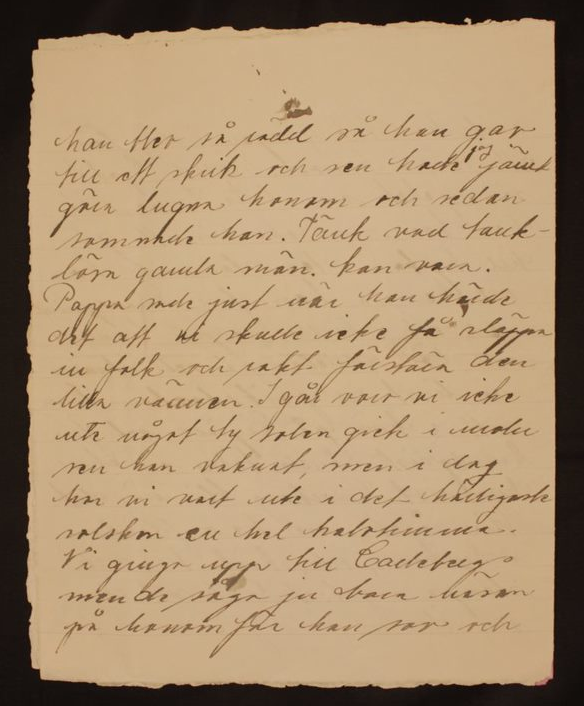 han blev så rädd så han gav
till ett skrik och sen hade jag jämt
göra lugna honom och sedan
somnade han. Tänk vad tank-
lösa gamla män. kan vara.
Pappa sade just när han hörde
det att vi skulle icke få släppa
in folk och rakt förstöra den
lilla vännen. I går voro vi icke
ute något ty solen gick i moln
sen han vaknat, men i dag
har vi varit ute i det härligaste
solsken en hel halvtimma.
Vi gingo upp till Carlsbergs
men de sågo ju bara näsan
på honom för han sov och